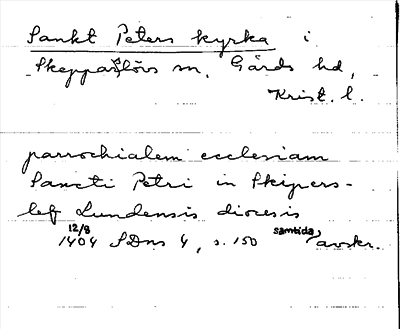 Sankt Peters kyrka i
Skepparslövs sn, Gärds hd,
Krist. l.
parrochialem ecclesiam
Sancti Petri in Skipers-
lef Lundensis diocesis
12/8
1404 SDns 4, s. 150 samtida avskr.